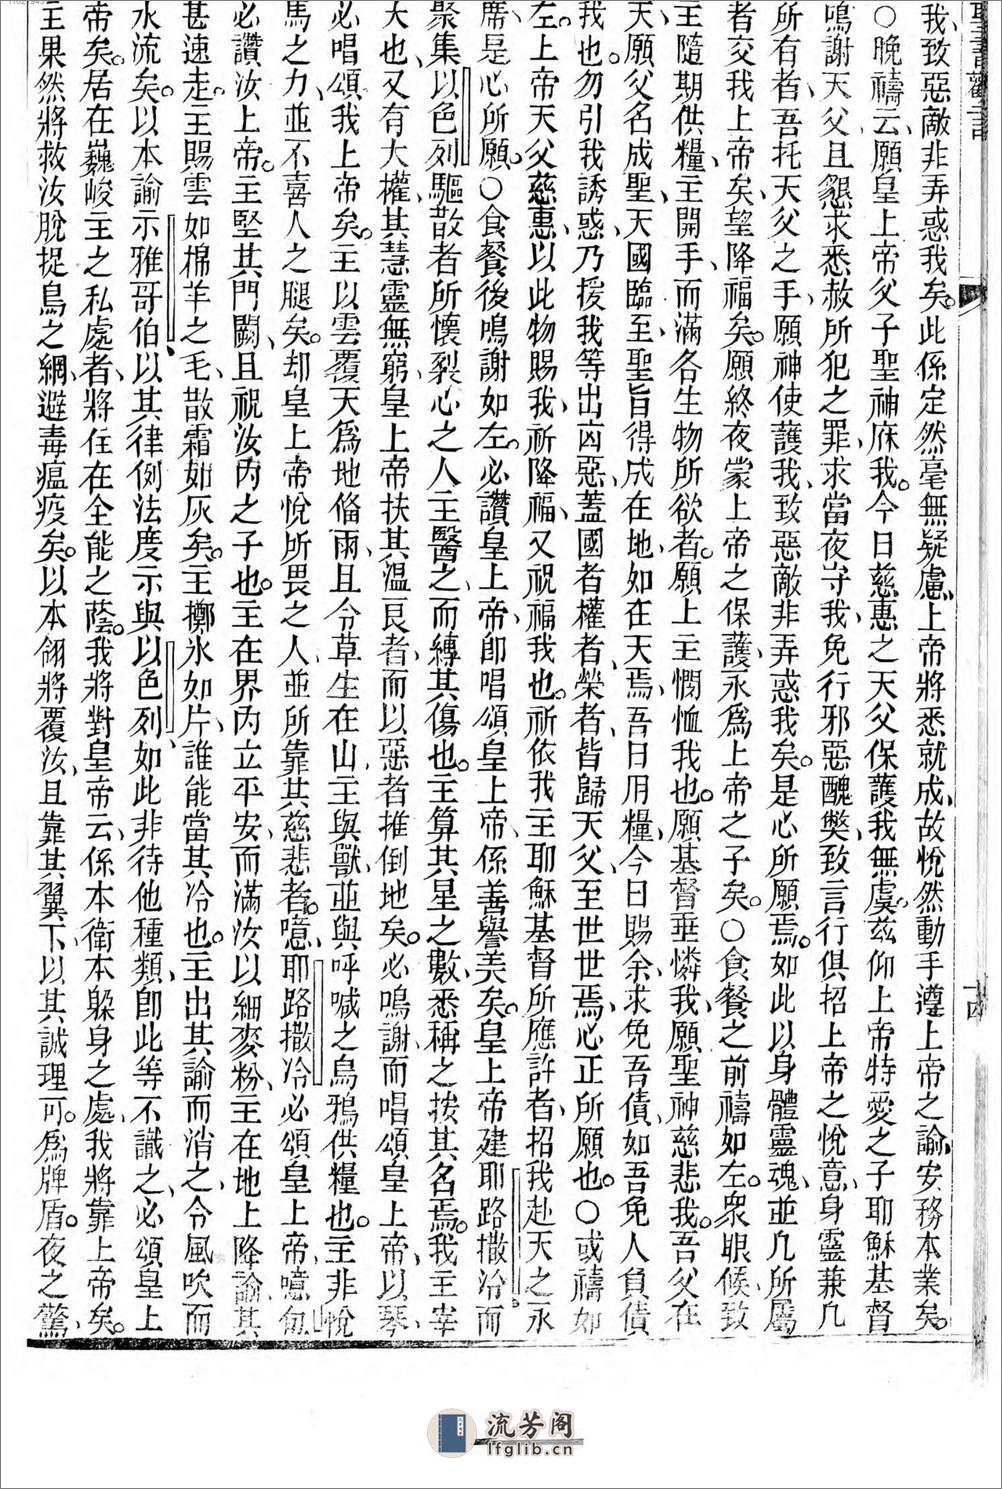 聖書勸言
十四
我、致惡敵非弄惑我矣。此係定然毫無疑慮、上帝將悉就成、故悅然動手遵上帝之諭、安務本業矣。
○晚禱云、願皇上帝父子聖神庥我。今日慈惠之天父保護我無虞。茲仰上帝特愛之子耶穌基督
鳴謝天父、且懇求悉赦所犯之罪、求當夜守我、免行邪惡醜弊、致言行俱招上帝之悅意、身靈兼凡
所有者、吾托天父之手、願神使護我、致惡敵非弄惑我矣。是心所願焉。如此以身體靈魂、並凡所屬
者交我上帝矣、望降福矣。願終夜蒙上帝之保護、永為上帝之子矣。○食餐之前禱如左。衆眼候致
主隨期供糧、主開手、而滿各生物所欲者。願上主憫恤我也。願基督垂憐我、願聖神慈悲我。吾父在
天、願父名成聖、天國臨至、聖旨得成在地、如在天焉、吾日用糧、今日賜余、求免吾債、如吾免人負債
我也。勿引我誘惑、乃援我等出凶惡、蓋國者權者、榮者、皆歸天父、至世世焉、心正所願也。○或禱如
左、上帝天父慈惠、以此物賜我、祈降福、又祝福我也。祈依我主耶穌基督所應許者、招我赴天之永
席、是心所願。○食餐後鳴謝如左。必讚皇上帝、卽唱頌皇上帝、係善譽美矣。皇上帝建耶路撒冷、而
聚集以色列驅散者、所懷裂心之人、主醫之、而縛其傷也。主算其星之數、悉稱之、按其名焉。我主宰
大也、又有大權、其慧靈無窮、皇上帝扶其溫良者、而以惡者推倒地矣。必鳴謝而唱頌皇上帝、以琴
必唱頌我上帝矣。主以雲覆天、為地偹雨、且令草生在山、主與獸、並與呼喊之烏鴉供糧也。主非悅
馬之力、並不喜人之腿矣。却皇上帝悅所畏之人、並所靠其慈悲者。噫、耶路撒冷必頌皇上帝、噫郇
必讚汝上帝。主堅其門闢、且祝汝內之子也。主在界內立平安、而滿汝以細麥粉、主在地上降諭、其
甚速走。主賜雲如棉羊之毛、散霜如灰矣。主擲氷如片、誰能當其冷也。主出其諭而消之、令風吹、而
水流矣。以本諭示雅哥伯、以其律例法度、示與以色列、如此非待他種類、卽此等不識之、必頌皇上
帝矣。居在巍峻主之私處者、將住在全能之蔭。我將對皇帝云、係本衛本躲身之處、我將靠上帝矣。
主果然將救汝脫捉鳥之網、避毒瘟疫矣。以本翎將覆汝、且靠其翼下、以其誠理可為牌盾。夜之驚
流芳阁
lfglib.cn